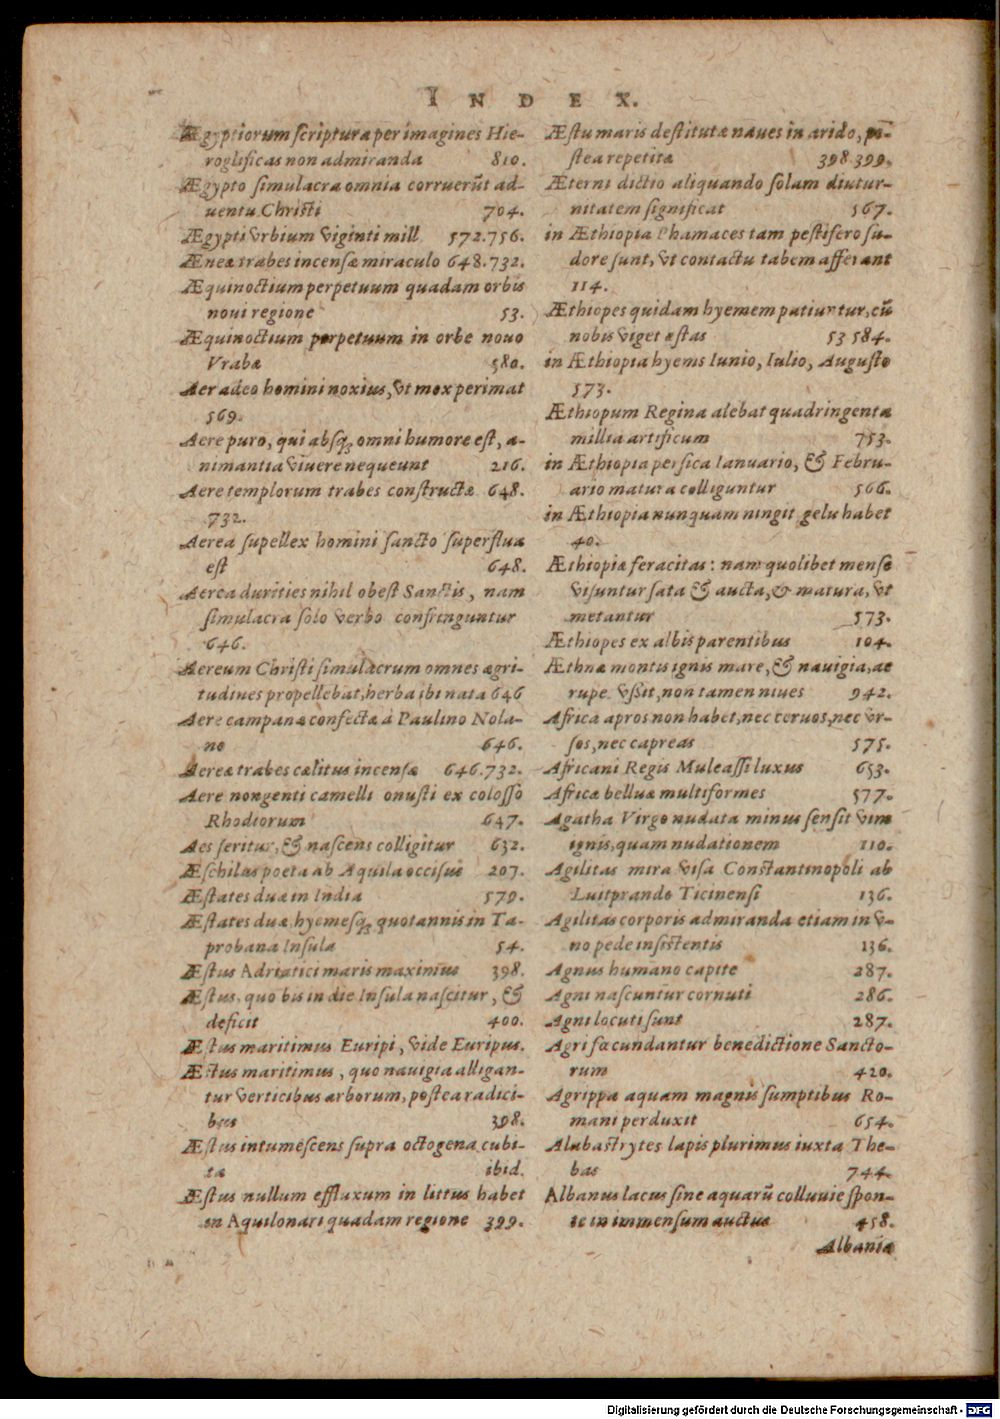 INDEX.
Ægyptiorum scriptura per imagines Hie-
roglificas non admiranda 810.
Ægypto simulacra omnia corruerũt ad-
uentu Christi 704.
Ægypti vrbium viginti mill 572.756.
Æneæ trabes incensæ miraculo 648.732.
Æquinoctium perpetuum quadam orbis
noui regione 53.
Æquinoctium perpetuum in orbe nouo
Vrabæ 580.
Aer adeo homini noxius, vt mox perimat
569.
Aere puro, qui absq; omni humore est, a-
nimantia viuere nequeunt 216.
Aere templorum trabes constructæ 648.
732.
Aerea supellex homini sancto superflua
est 648.
Aerea durities nihil obest Sanctis, nam
simulacra solo verbo confringuntur
646.
Aereum Christi simulacrum omnes ægri-
tudines propellebat, herba ibi nata 646
Aere campanæ confectæ à Paulino Nola-
no 646.
Aereæ trabes cælitus incensæ 646.732.
Aere nongenti camelli onusti ex colosso
Rhodiorum 647.
Aes seritur, & nascens colligitur 632.
Æschilus poeta ab Aquila occisus 207.
Æstates duæ in India 579.
Æstates duæ, hyemesq; quotannis in Ta-
probana Insula 54.
Æstus Adriatici maris maximus 398.
Æstus, quo bis in die Insula nascitur, &
deficit 400.
Æstus maritimus Euripi, vide Euripus.
Æstus maritimus, quo nauigia alligan-
tur verticibus arborum, postea radici-
bus 398.
Æstus intumescens supra octogena cubi-
ta ibid.
Æstus nullum effluxum in littus habet
in Aquilonari quadam regione 399.
Æstu maris destitutæ naues in arido, po-
stea repetitæ 398 399.
Æterni dictio aliquando solam diutur-
nitatem significat 567.
in Æthiopia Phamaces tam pestifero su-
dore sunt, vt contactu tabem afferant
114.
Æthiopes quidam hyemem patiuntur, cũ
nobis viget æstas 53 584.
in Æthiopia hyems Iunio, Iulio, Augusto
573.
Æthiopum Regina alebat quadringenta
millia artificum 753.
in Æthiopia persica Ianuario, & Febru-
ario matura colliguntur 566.
in Æthiopia nunquam ningit gelu habet
40.
Æthiopiæ feracitas: nam quolibet mense
visuntur sata & aucta, & matura, vt
metantur 573.
Æthiopes ex albis parentibus 104.
Æthnæ montis ignis mare, & nauigia, ac
rupe vssit, non tamen niues 942.
Africa apros non habet, nec ceruos, nec vr-
sos, nec capreas 575.
Africani Regis Muleassi luxus 653.
Africæ belluæ multiformes 577.
Agatha Virgo nudata minus sensit vim
ignis, quam nudationem 110.
Agilitas mira visa Constantinopoli ab
Luitprando Ticinensi 136.
Agilitas corporis admiranda etiam in v-
no pede insistentis 136.
Agnus humano capite 287.
Agni nascuntur cornuti 286.
Agni locuti sunt 287.
Agri fœcundantur benedictione Sancto-
rum 420.
Agrippa aquam magnis sumptibus Ro-
mani perduxit 654.
Alabastrytes lapis plurimus iuxta The-
bas 744.
Albanus lacus sine aquarũ colluuie spon-
te in immensum auctus 458.
Albania
Digitalisierung gefördert durch die Deutsche Forschungsgemeinschaft - DFG